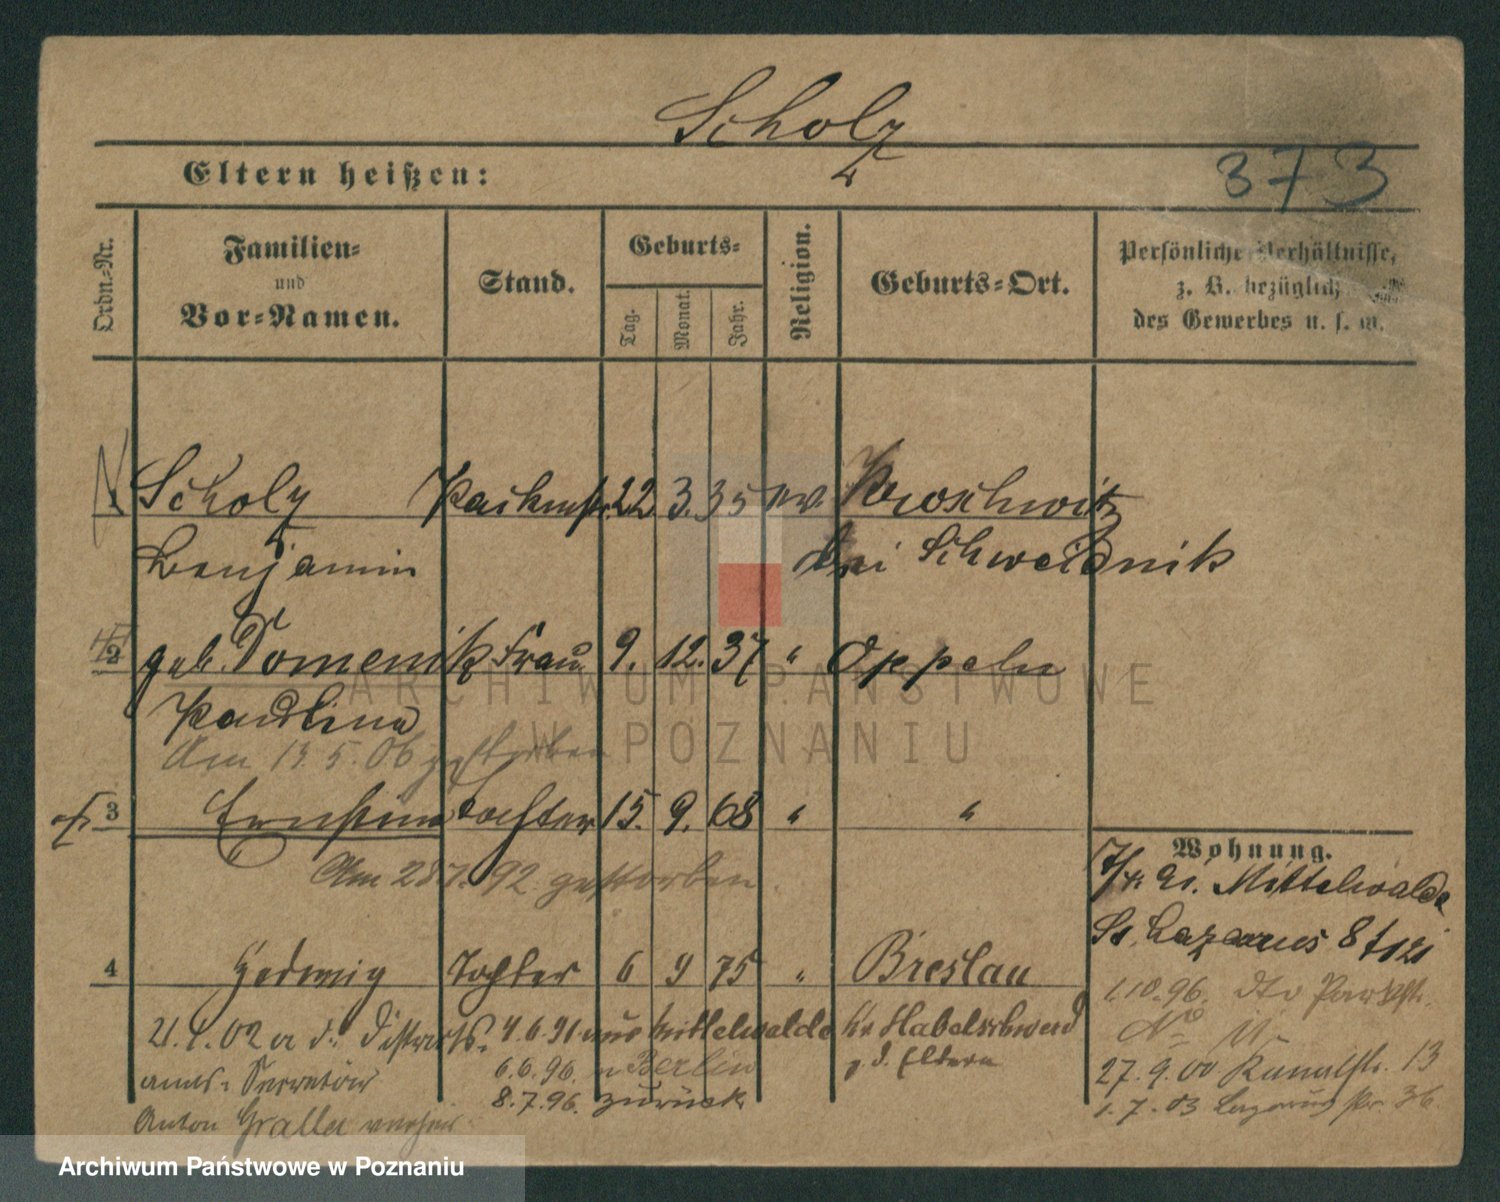 Scholz
Eltern heißen:
373
Ordn.-Nr.
Familien-
und
Vor-Namen.
Stand.
Geburts-
Tag.
Monat.
Jahr.
Religion.
Geburts-Ort.
Persönliche Verhältnisse,
z. B. bezüglich
des Gewerbes u. s. w.
1 Scholz Packmstr. 22 3. 35 ev. Kroschwitz
Benjamin bei Schweidnik
2 geb. Domenik Frau 9. 12. 37 " Oppeln
Paulina
Am 13 5. 06 gestorben
3 Ernstine Tochter 15. 9. 68 " "
Am 28 7. 92 gestorben.
4 Hedwig Tochter 6 9 75 " Breslau
21.1.02 a d. Distrikts-
amts-Secretär
Anton Gralla
4.6.91 aus Mittelwalde Kr Habelschwerd
6.6.96. n Berlin z. d. Eltern
8.7.96. zurück
Wohnung.
Mittelwalde
St. Lazarus 8
1.10.96. dto Parkstr.
No 11
27.9.00 Kanalstr. 13
1.7.03 Lazarus str. 36.
ARCHIWUM PAŃSTWOWE
W POZNANIU
Archiwum Państwowe w Poznaniu